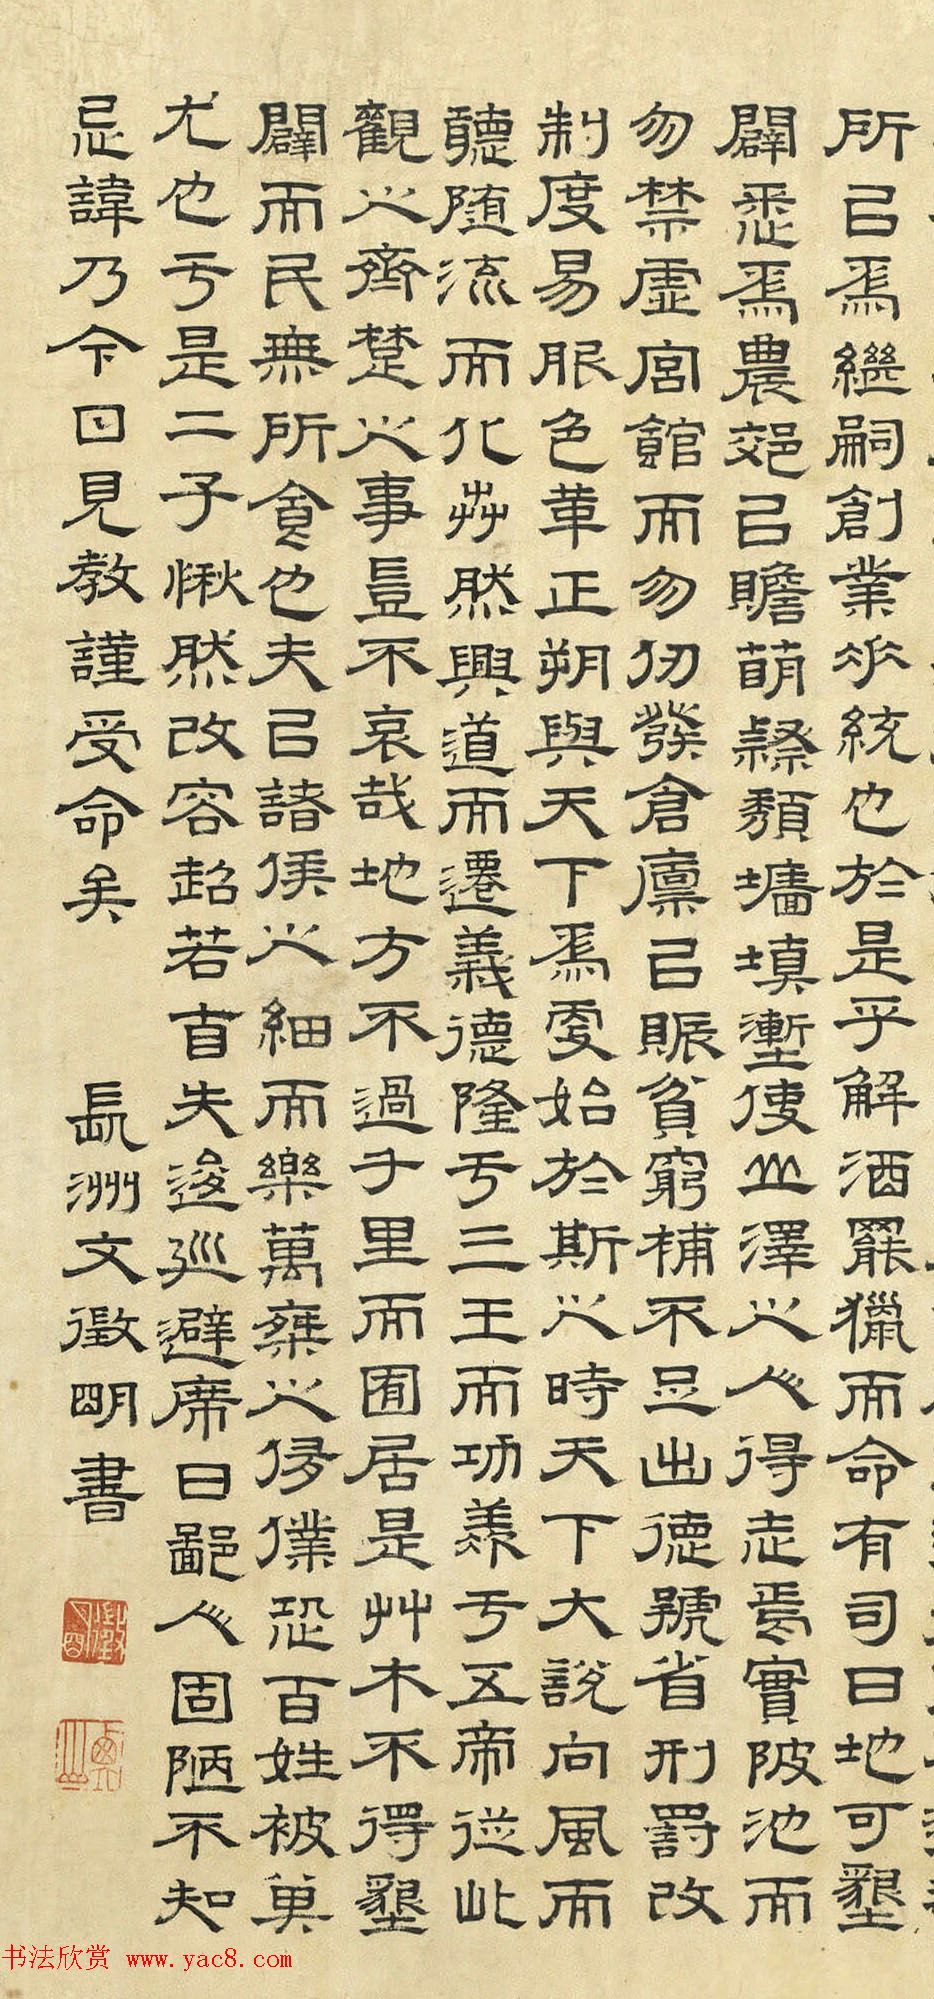 所以為繼嗣創業垂統也於是乎解酒罷獵而命有司曰地可墾
闢悉為農郊以贍萌隸頹墻填壍使山澤之人得走焉實陂池而
勿禁虛宮館而勿仞發倉廩以賑貧窮補不足出德號省刑罰改
制度易服色革正朔與天下為更始於斯之時天下大說向風而
聽隨流而化芔然興道而遷義德隆于三王而功羨于五帝從此
觀之齊楚之事豈不哀哉地方不過千里而囿居是艸木不得墾
闢而民無所食也夫以諸侯之細而樂萬乘之侈僕恐百姓被其
尤也于是二子愀然改容超若自失逡巡避席曰鄙人固陋不知
忌諱乃今日見教謹受命矣 長洲文徵明書
书法欣赏 www.yac8.com